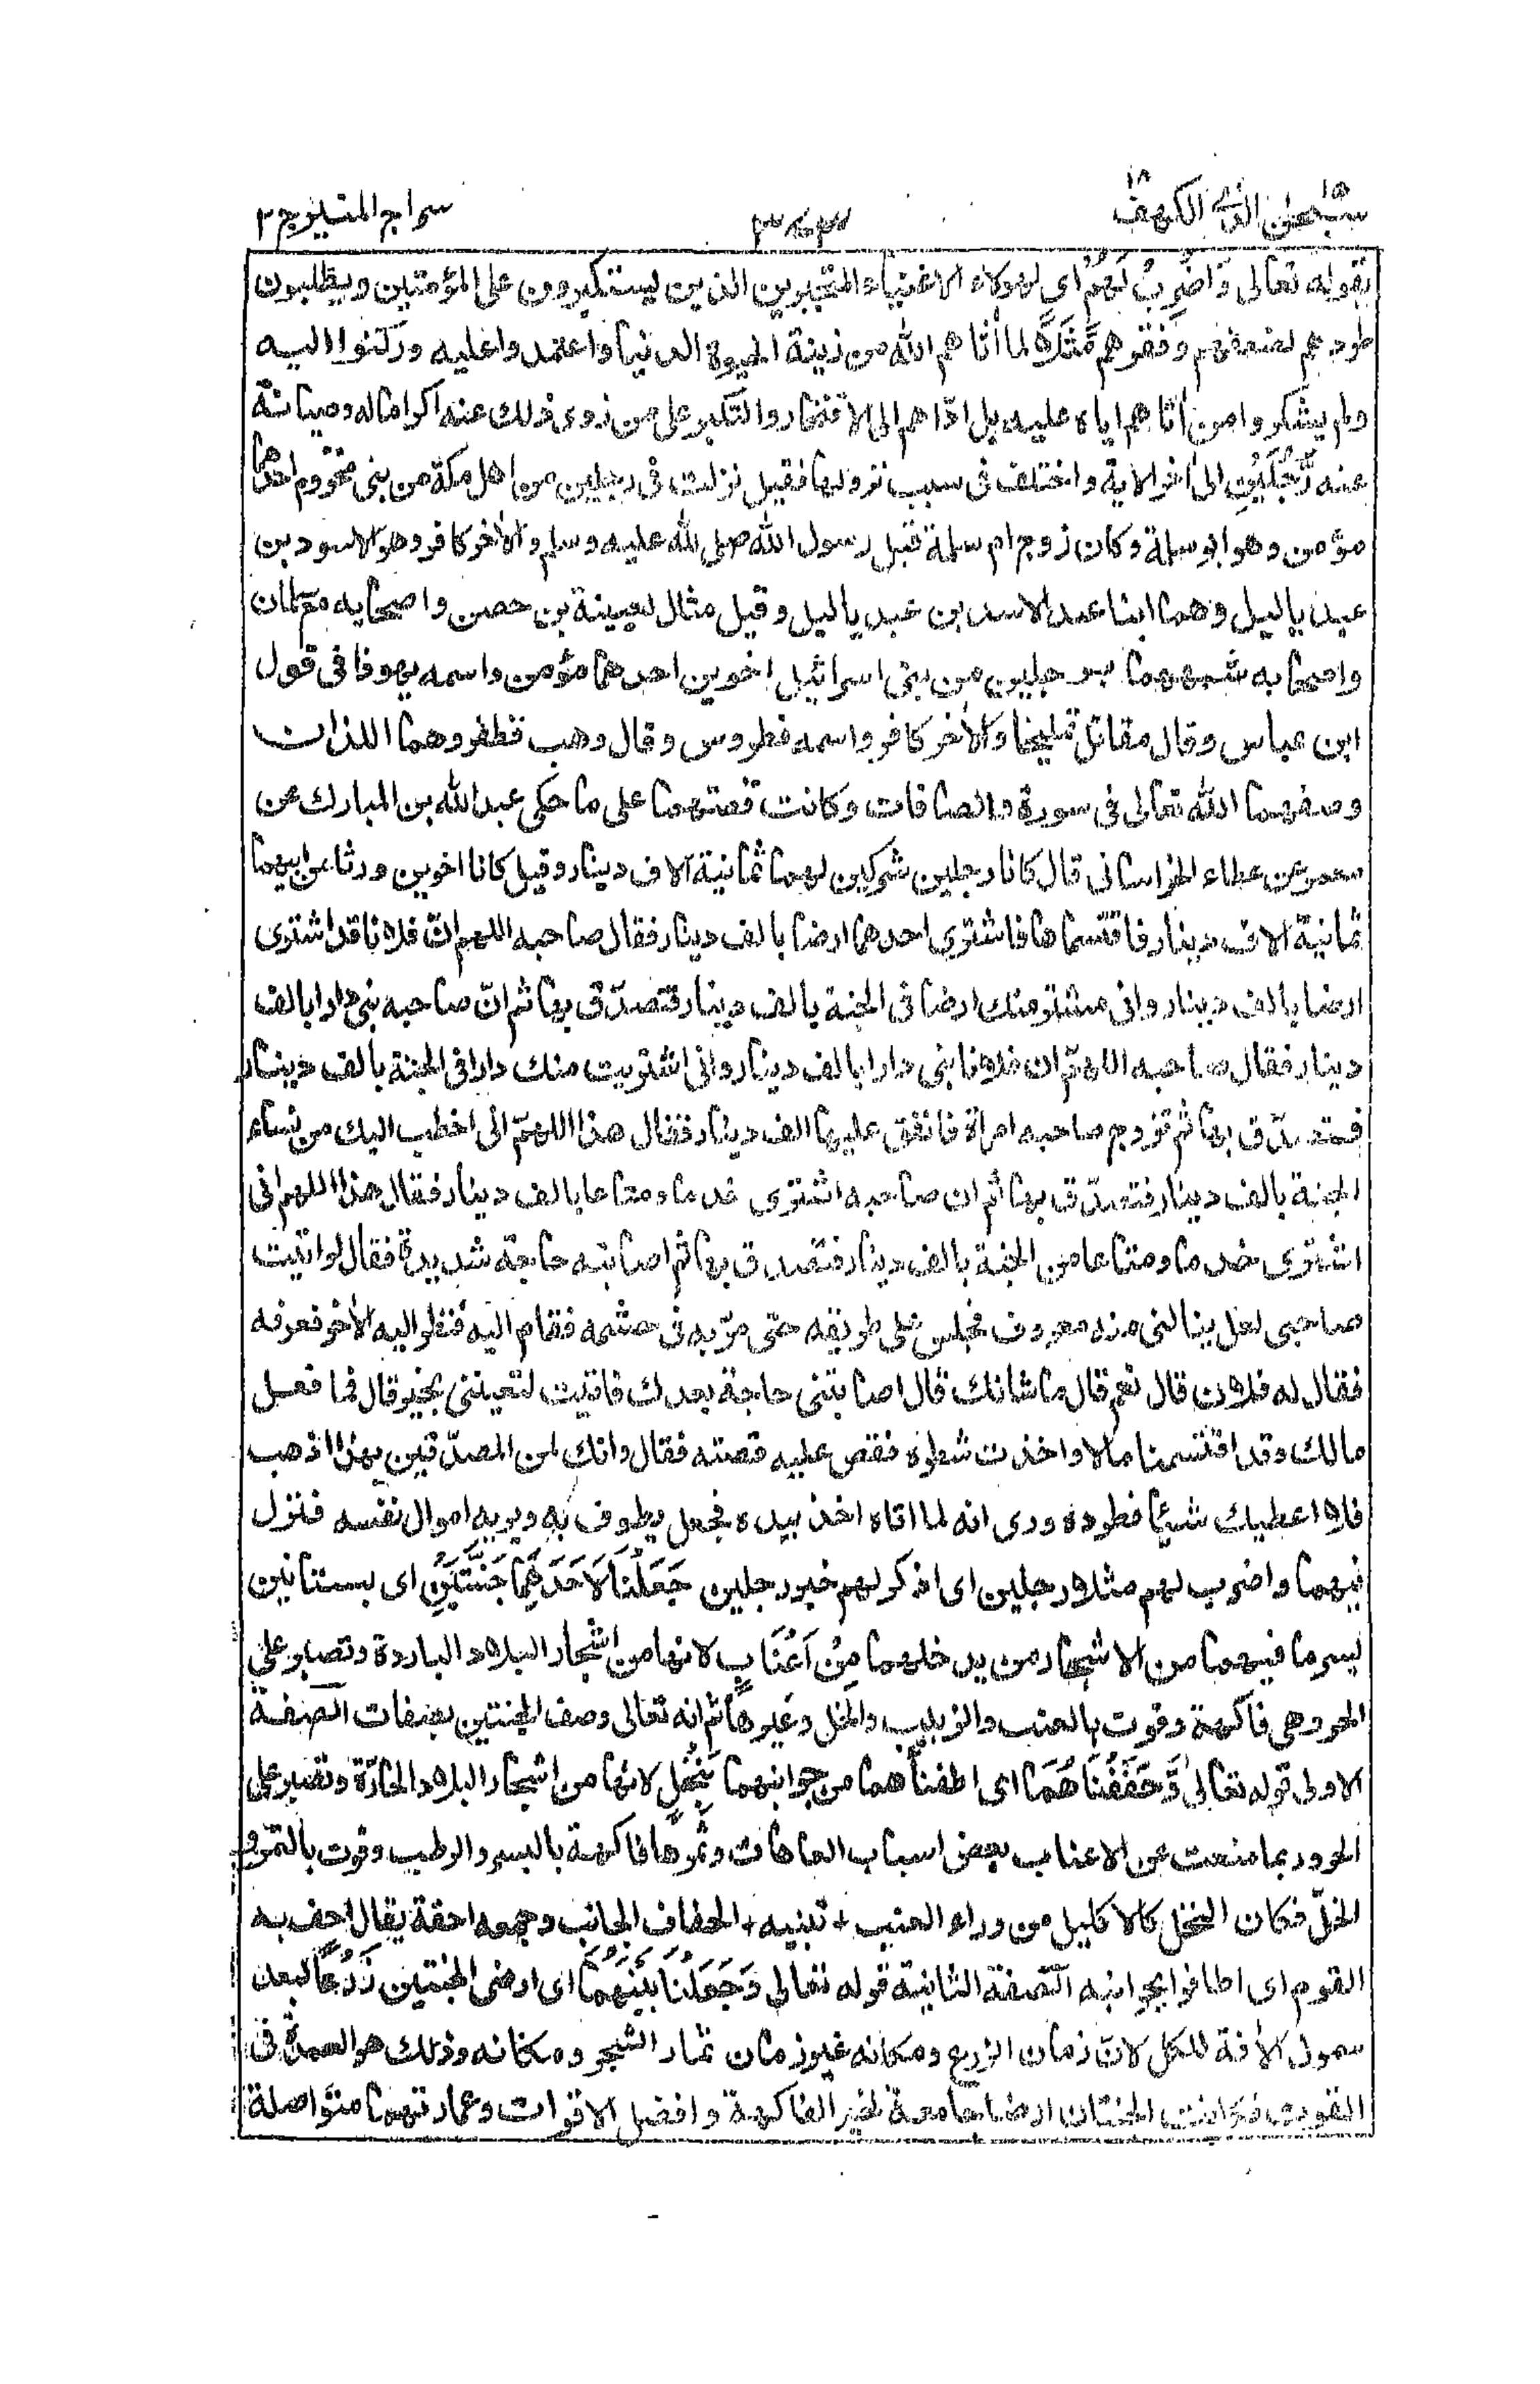 سبحٰن الذی ١٥ الكهف ١٨
سراج المنیر ج ٢
بقوله تعالى وَّاضْرِبْ لَهُمْ اى لهولاء الاغنياء المتجبرين الذين يستكبرون على المؤمنين ويطلبون
طردهم لضعفهم وفقرهم مَّثَلًا لما اٰتاهم الله من زينة الحيوة الدنيا واعتمدوا عليه وركنوا اليه
ولم يشكروا من اٰتاهم اياه عليه بل ادّاهم الى الافتخار والتكبر على من زوى ذلك عنه اكراما له وصيانة
عنه رَّجُلَيْنِ الىٰ اٰخر الاية واختلف فى سبب نزولها فقيل نزلت فى رجلين من اهل مكة من بنى مخزوم احدهما
مؤمن وهو ابو سلمة وكان زوج ام سلمة قبل رسول الله صلى الله عليه وسلم والاٰخر كافر وهو الاسود بن
عبد ياليل وهما ابنا عبد الاسد بن عبد ياليل وقيل مثال لعيينة بن حصن واصحابه مع سلمان
واصحابه شبههما برجلين من بنى اسرائيل اخوين احدهما مؤمن واسمه يهوذا فى قول
ابن عباس وقال مقاتل تمليخا والاٰخر كافر واسمه فطروس وقال وهب قطفر وهما اللذان
وصفهما الله تعالى فى سورة والصافات وكانت قصتهما على ما حكى عبد الله بن المبارك عن
معمر عن عطاء الخراسانى قال كانا رجلين شريكين لهما ثمانية اٰلاف دينار وقيل كانا اخوين ورثا من ابيهما
ثمانية اٰلاف دينار فاقتسماها فاشترى احدهما ارضا بالف دينار فقال صاحبه اللهم انّ فلانا قد اشترى
ارضا بالف دينار وانى مشتر منك ارضا فى الجنة بالف دينار فتصدّق بها ثم انّ صاحبه بنى دارا بالف
دينار فقال صاحبه اللهمّ ان فلانا بنى دارا بالف دينار وانى اشتريت منك دارا فى الجنة بالف دينار
فتصدّق بها ثم تزوج صاحبه امراة فانفق عليها الف دينار فقال هذا اللهمّ انى اخطب اليك من نساء
الجنة بالف دينار فتصدّق بها ثم ان صاحبه اشترى خدما ومتاعا بالف دينار فقال هذا اللهم انى
اشترى خدما ومتاعا من الجنة بالف دينار فتصدق بها ثم اصابته حاجة شديدة فقال لو اتيت
صاحبى لعل ينالنى منه معروف فجلس على طريقه حتى مرّ به فى حشمه فقام اليه فنظر اليه الاٰخر فعرفه
فقال له فلان قال نعم قال ما شانك قال اصابتنى حاجة بعدك فاتيت لتعيننى بخير قال فما فعل
مالك وقد اقتسمنا مالا واخذت شطره فقص عليه قصته فقال وانك لمن المصدّقين بهذا اذهب
فلا اعطيك شيئا فطرده وروى انه لما اتاه اخذ بيده فجعل يطوف به ويريه اموال نفسه فنزل
فيهما واضرب لهم مثلا رجلين اى اذكر لهم خبر رجلين جَعَلْنَا لِاَحَدِهِمَا جَنَّتَيْنِ اى بستانين
يسر ما فيهما من الاشجار من يدخلهما مِنْ اَعْنَابٍ لانها من اشجار البلاد الباردة وتصبر على
الحر وهى فاكهة وقوت بالعنب والزبيب والخل وغيرها ثم انه تعالى وصف الجنتين بصفات الصفة
الاولى قوله تعالىٰ وَّحَفَفْنَاهُمَا اى اطفناهما من جوانبهما بِنَخْلٍ لانها من اشجار البلاد الحارّة وتصبر على
الحر وربما منعت عن الاعناب بعض اسباب العاهات وثمرها فاكهة بالبسر والرطب وقوت بالتمر و
الخلّ فكان النخل كالاكليل من وراء العنب + تنبيه + الحفاف الجانب وجمعه احفة يقال احف به
القوم اى اطافوا بجوانبه الصفة الثانية قوله تعالى وَجَعَلْنَا بَيْنَهُمَا اى ارضى الجنتين زَرْعًا لبعد
شمول الاٰفة للكل لانّ زمان الزرع ومكانه غير زمان ثمار الشجر ومكانه وذلك هو العمدة فى
القوت فكانت الجنتان ارضا جامعة لخير الفاكهة وافضل الاقوات وعمارتهما متواصلة